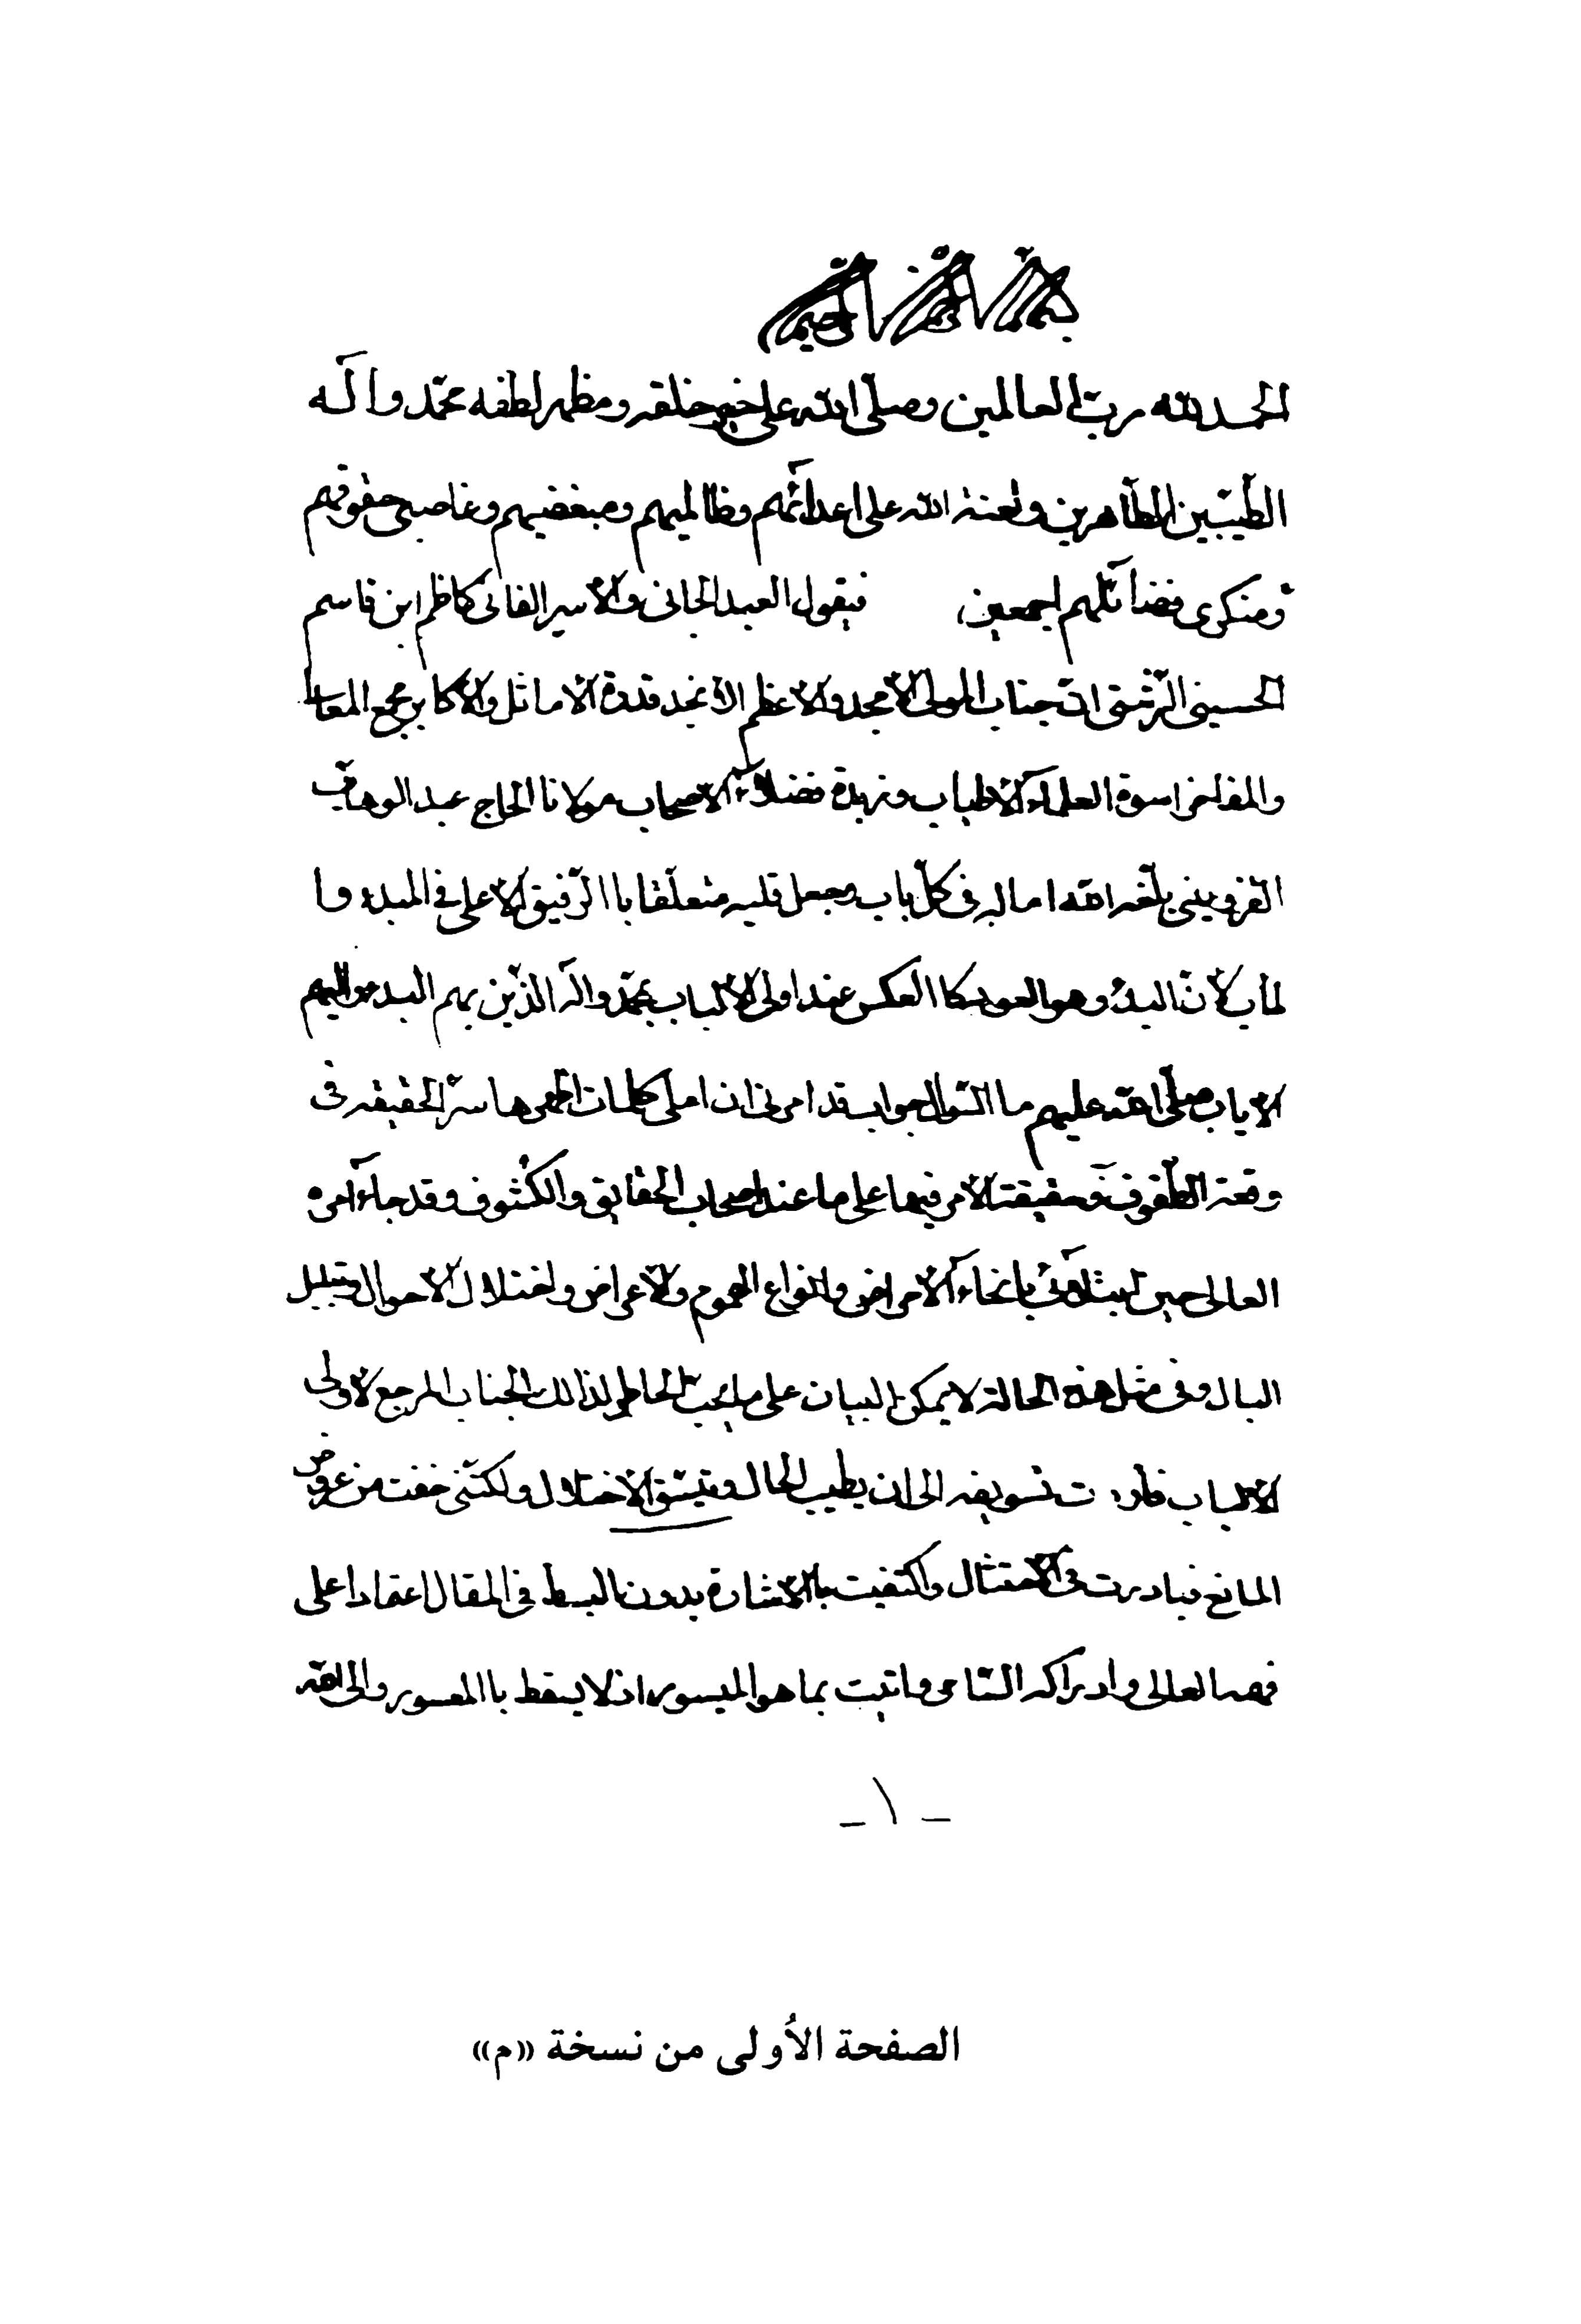 بسم الله الرحمن الرحيم
الحمد لله رب العالمين وصلّى الله على خير خلقه ومظهر لطفه محمّد وآله
الطيّبين الطّاهرين ولعنة الله على اعدائهم وظالميهم ومبغضيهم وغاصبي حقوقهم
ومنكرى فضائلهم اجمعين فيقول العبد الجانى والاسير الفانى كاظم ابن قاسم
الحسينى الرّشتى انّ جناب المولى الامجد والاعظم الانجد قدوة الاماثل والاكابر مجمع المعا
والمفاخر اسوة العلماء الاطياب وزبدة فضلاء الاصحاب مولانا الحاج عبد الوهاب
القزوينى بلّغه الله اماله فى كلّ باب وجعل قلبه متعلّقا باالرّفيق الاعلى فى المبدء وا
لمأب لأنّ البدؤ وهو العود كاالعكس عند اولى الالباب بمحمّد وآله الذّين بهم البدء واليهم
الاياب صلّى الله عليهم ما السّؤال جواب قد امرنى ان املى كلمات اظهر بها سرّ الحقيقه فى
وقعة الطّفوف وحقيقة الامر فيها على ما عند اصحاب الحقايق والكشوف وقد جاء امره
العالى حين ابتلائى بانحاء الامراض وانواع الهموم والاعراض واختلال الاحوال وتبلبل
البال وفى مثل هذه الحالة لا يمكن البيان على ما يحبّ الخاطر لذالك الجناب المرجع لاولى
الالباب فاردت تسويفه الى ان يطيب الحال ويتسّق الاختلال ولكنّنى خفت من عروض
المانع فبادرت فى الامتثال واكتفيت باالاشارة بدون البسط فى المقال اعتمادا على
فهمه العالى وادراكه السّامى واتيت بما هو الميسور اذ لا يسقط باالمعسور والى الله
ـ ١ ـ
الصفحة الأولى من نسخة «م»